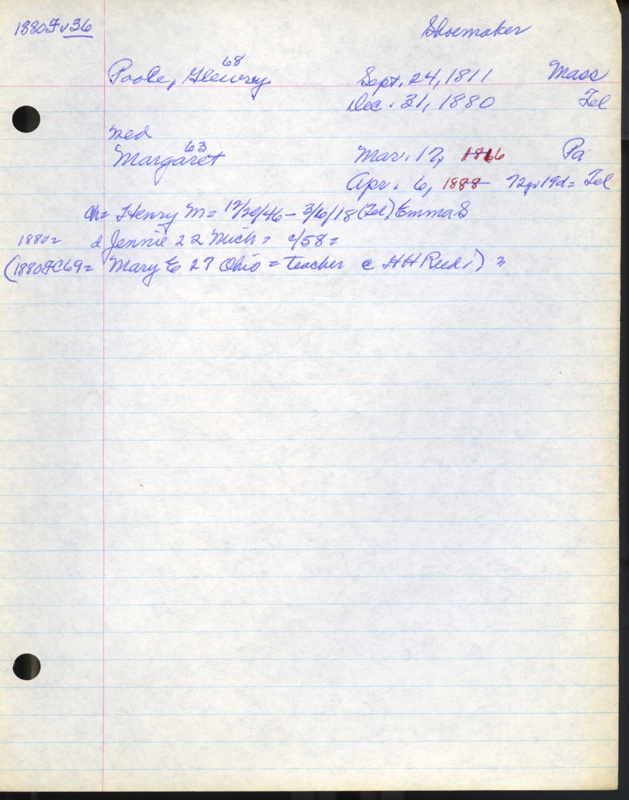 1880Fv36 Shoemaker
68
Poole, Henry Sept. 24, 1811 Mass
Dec. 31, 1880 Fel
med
63
Margaret Mar. 17, 1816 Pa
Apr. 6, 1888 72y 19d = Fel
Ch = Henry M = 12/20/46 - 3/6/18 (Fel) Emma S
1880 = d Jennie 22 Mich = c/58 =
(1880FC69 = Mary E 27 Ohio = Teacher c HH Reed)